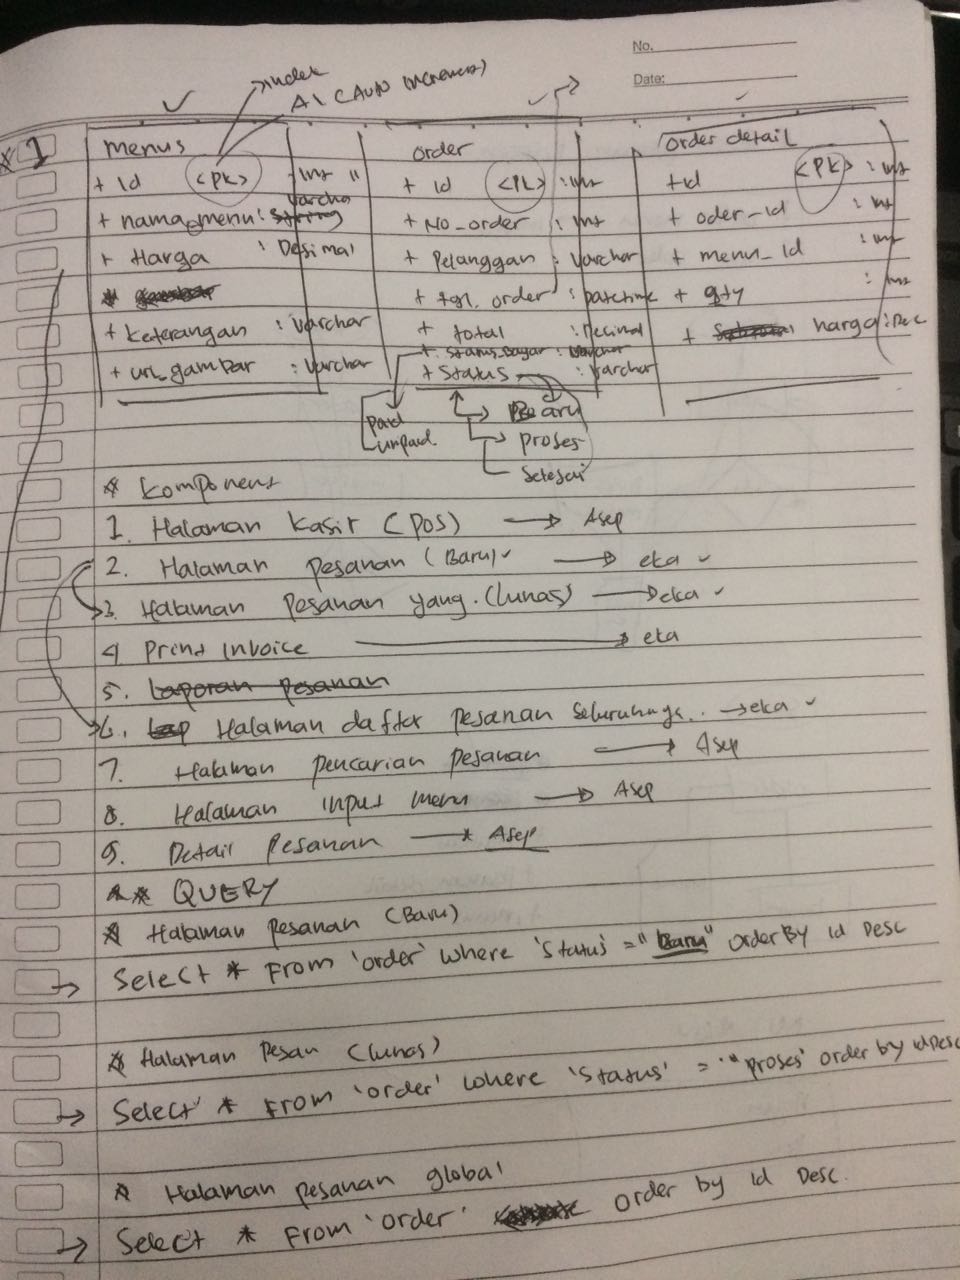 No.
Date:
index
AI (Auto increment)
* 1
menus
+ Id <PK> : Int 11
+ nama_menu : varchar
+ Harga : Desimal
+ Keterangan : Varchar
+ url_gambar : Varchar
order
+ id <PK> : Int
+ No_order : Int
+ Pelanggan : Varchar
+ tgl. order : Datetime
+ total : Decimal
+ Status_bayar : Varchar
+ Status : Varchar
paid
unpaid
Baru
proses
Selesai
order detail
+ id <PK> : Int
+ oder_id : Int
+ menu_id : Int
+ qty : Int
+ harga : Dec
* Komponent
1. Halaman Kasir (POS) → Asep
2. Halaman pesanan (Baru) ✓ → eka ✓
3. Halaman pesanan yang. (lunas) → eka ✓
4 Print Invoice → eka
5. Laporan pesanan
6. Lap Halaman daftar pesanan seluruhnya.. → eka ✓
7. Halaman pencarian pesanan → Asep
8. Halaman input menu → Asep
9. Detail pesanan → Asep
** QUERY
* Halaman pesanan (Baru)
→ Select * From 'order' where 'Status' = "Baru" order By id Desc
* Halaman pesan (lunas)
→ Select * From 'order' where 'Status' = "proses' order by id Desc
* Halaman pesanan global
→ Select * From 'order' order by id Desc.